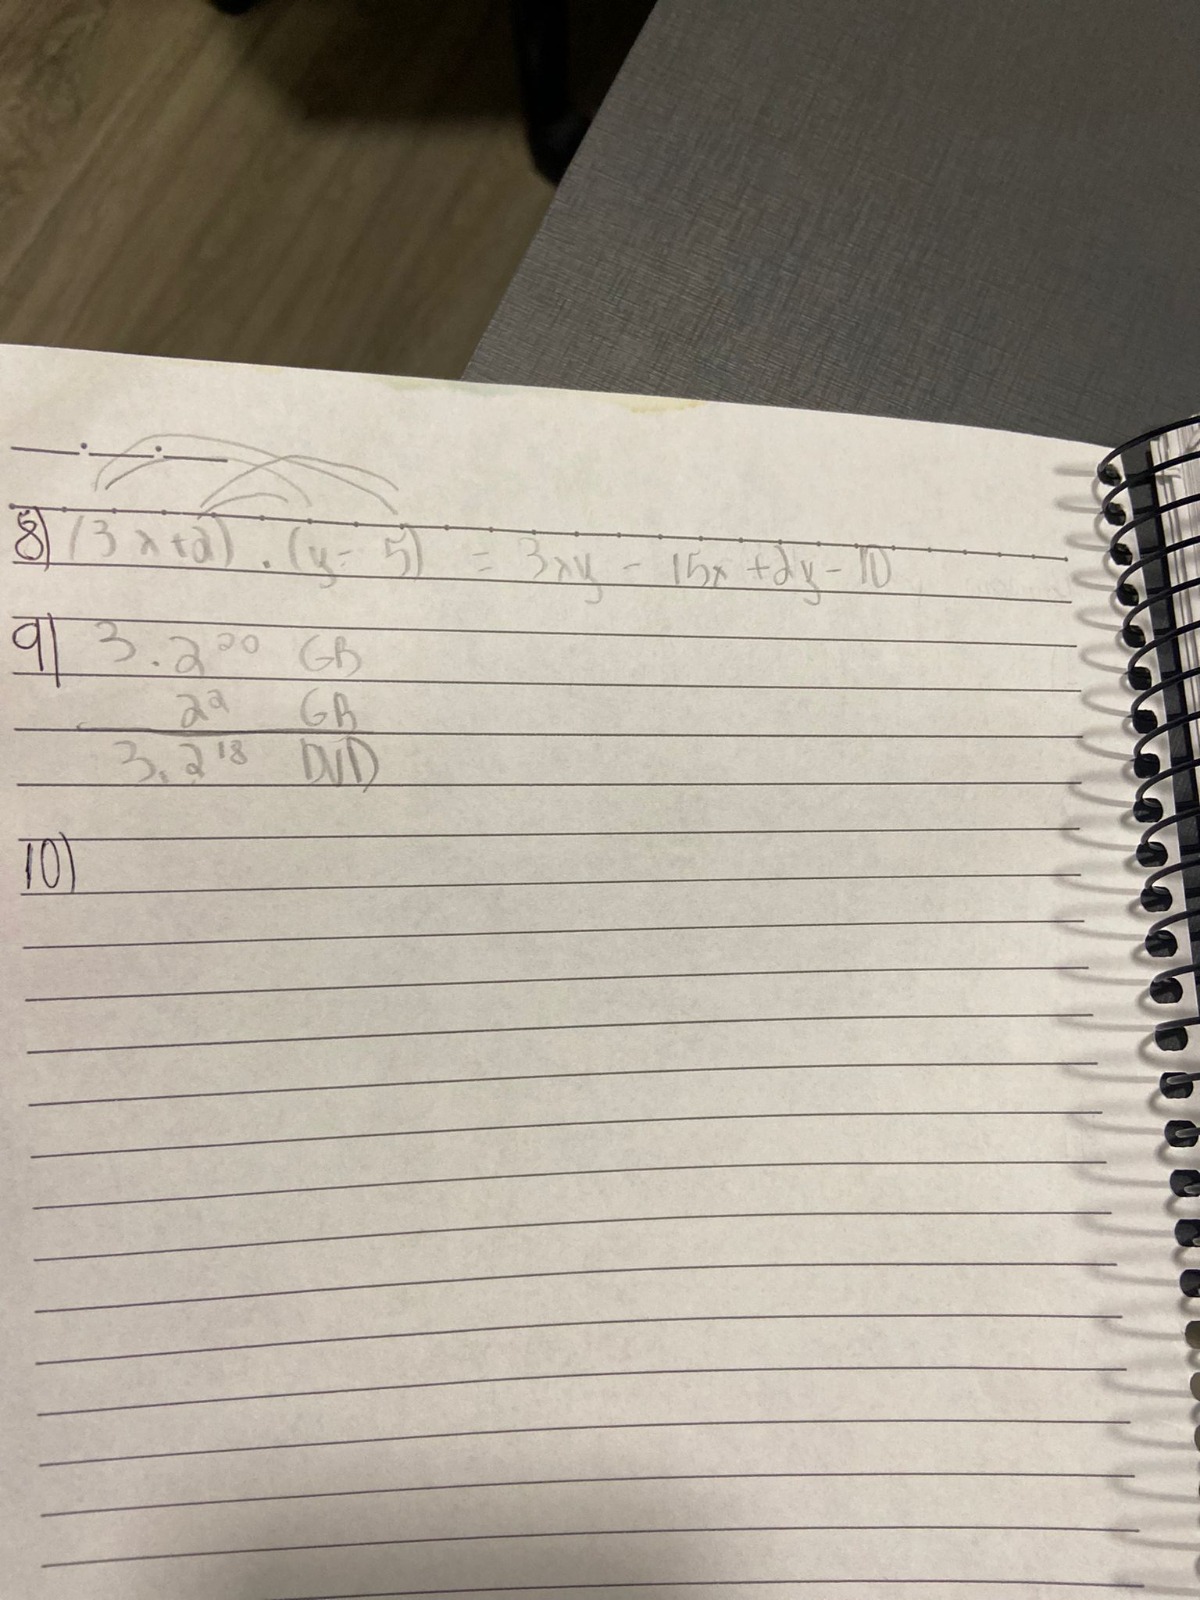 8) (3x+2) . (y - 5) = 3xy - 15x + 2y - 10
9) 3.2²⁰ GB
2² GB
3.2¹⁸ DVD
10)